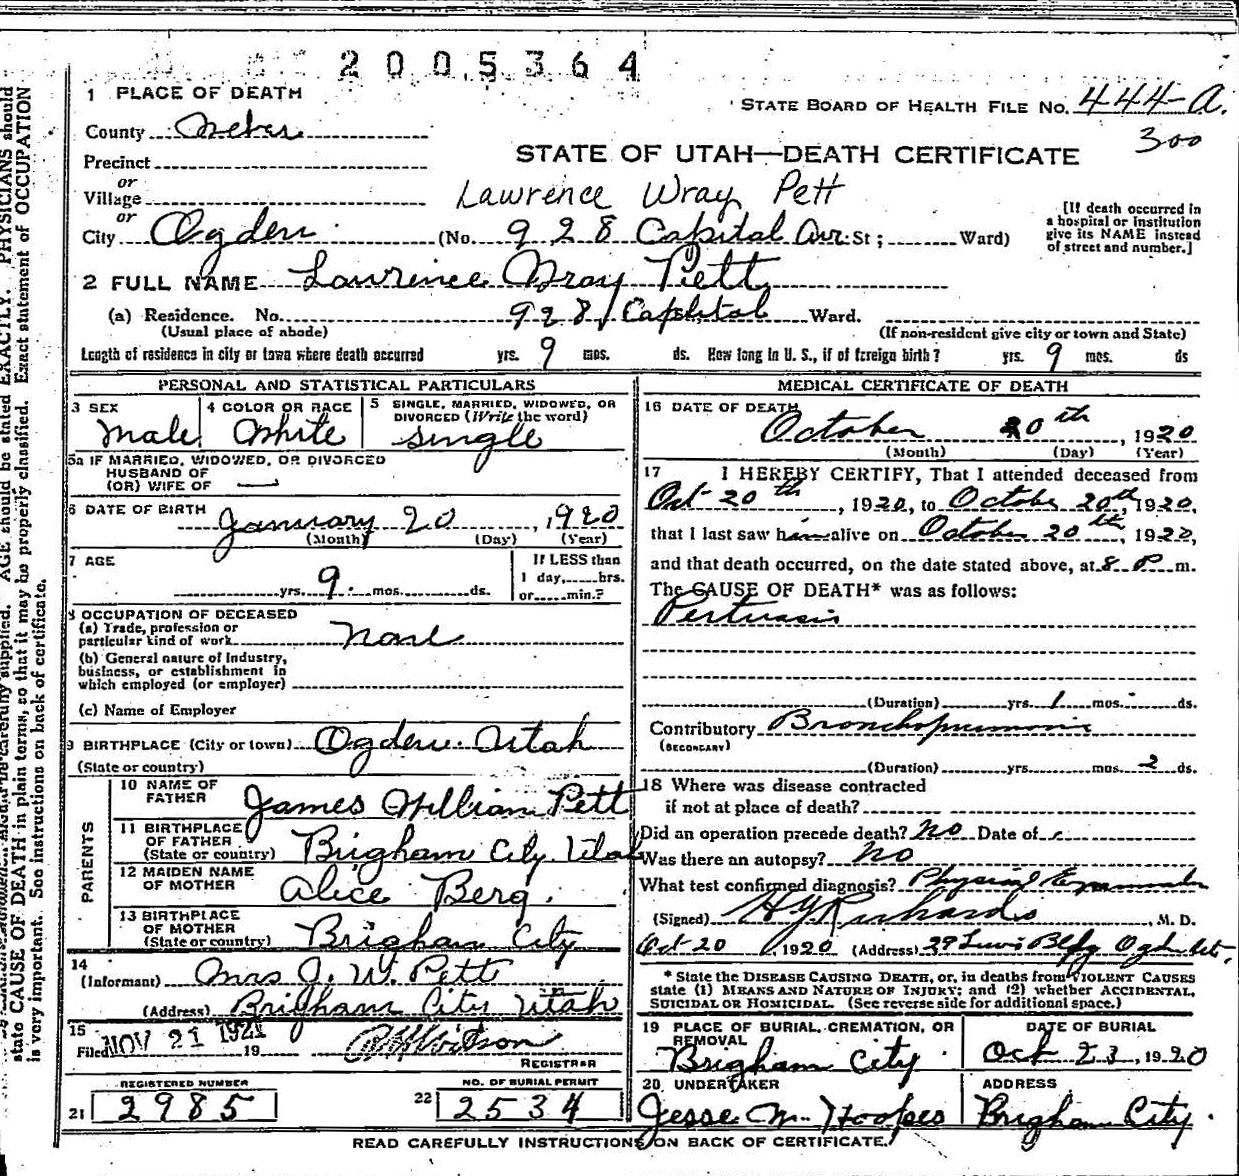 2005364
1 PLACE OF DEATH
STATE BOARD OF HEALTH FILE No. 444-A.
300
County Weber
STATE OF UTAH—DEATH CERTIFICATE
Precinct
or
Village
Lawrence Wray Pett
or
City Ogden (No. 928 Capital Ave. St; Ward)
[If death occurred in
a hospital or institution
give its NAME instead
of street and number.]
2 FULL NAME Lawrence Wray Pett
(a) Residence. No. 928 Capital Ward.
(Usual place of abode) (If non-resident give city or town and State)
Length of residence in city or town where death occurred yrs. 9 mos. ds. How long in U. S., if of foreign birth? yrs. 9 mos. ds
PERSONAL AND STATISTICAL PARTICULARS
3 SEX
Male
4 COLOR OR RACE
White
5 SINGLE, MARRIED, WIDOWED, OR
DIVORCED (Write the word)
single
5a IF MARRIED, WIDOWED, OR DIVORCED
HUSBAND OF
(OR) WIFE OF —
6 DATE OF BIRTH January 20, 1920
(Month) (Day) (Year)
7 AGE
yrs. 9 mos. ds.
If LESS than
1 day, hrs.
or min.?
8 OCCUPATION OF DECEASED
(a) Trade, profession or
particular kind of work None
(b) General nature of Industry,
business, or establishment in
which employed (or employer)
(c) Name of Employer
9 BIRTHPLACE (City or town) Ogden Utah
(State or country)
PARENTS
10 NAME OF
FATHER James William Pett
11 BIRTHPLACE
OF FATHER
(State or country) Brigham City Utah
12 MAIDEN NAME
OF MOTHER Alice Berg.
13 BIRTHPLACE
OF MOTHER
(State or country) Brigham City
14
(Informant) Mrs J. W. Pett
(Address) Brigham City Utah
15
Filed NOV 21 1921 19
REGISTRAR
REGISTERED NUMBER
21 2985
NO. OF BURIAL PERMIT
22 2534
MEDICAL CERTIFICATE OF DEATH
16 DATE OF DEATH
October 20th, 1920
(Month) (Day) (Year)
17 I HEREBY CERTIFY, That I attended deceased from
Oct 20th, 1920, to October 20th, 1920,
that I last saw him alive on October 20th, 1920,
and that death occurred, on the date stated above, at 8 P m.
The CAUSE OF DEATH* was as follows:
Pertussis
(Duration) yrs. 1 mos. ds.
Contributory Bronchopneumonia
(SECONDARY)
(Duration) yrs. mos. 2 ds.
18 Where was disease contracted
if not at place of death?
Did an operation precede death? No Date of
Was there an autopsy? No
What test confirmed diagnosis? Physical Examination
(Signed) H Y Richards M. D.
Oct 20, 1920 (Address) 29 Lewis Bldg Ogden
* State the DISEASE CAUSING DEATH, or, in deaths from VIOLENT CAUSES
state (1) MEANS AND NATURE OF INJURY; and (2) whether ACCIDENTAL,
SUICIDAL OR HOMICIDAL. (See reverse side for additional space.)
19 PLACE OF BURIAL, CREMATION, OR
REMOVAL
Brigham City
DATE OF BURIAL
Oct 23, 1920
20 UNDERTAKER
Jesse M. Hoopes
ADDRESS
Brigham City.
READ CAREFULLY INSTRUCTIONS ON BACK OF CERTIFICATE.
carefully supplied. AGE should be stated EXACTLY. PHYSICIANS should
state CAUSE OF DEATH in plain terms, so that it may be properly classified. Exact statement of OCCUPATION
is very important. See instructions on back of certificate.